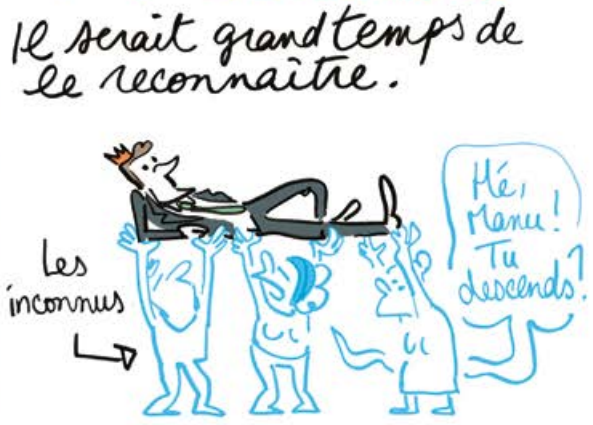 Il serait grand temps de
le reconnaître.
Les
inconnus
Hé,
Manu!
Tu
descends?